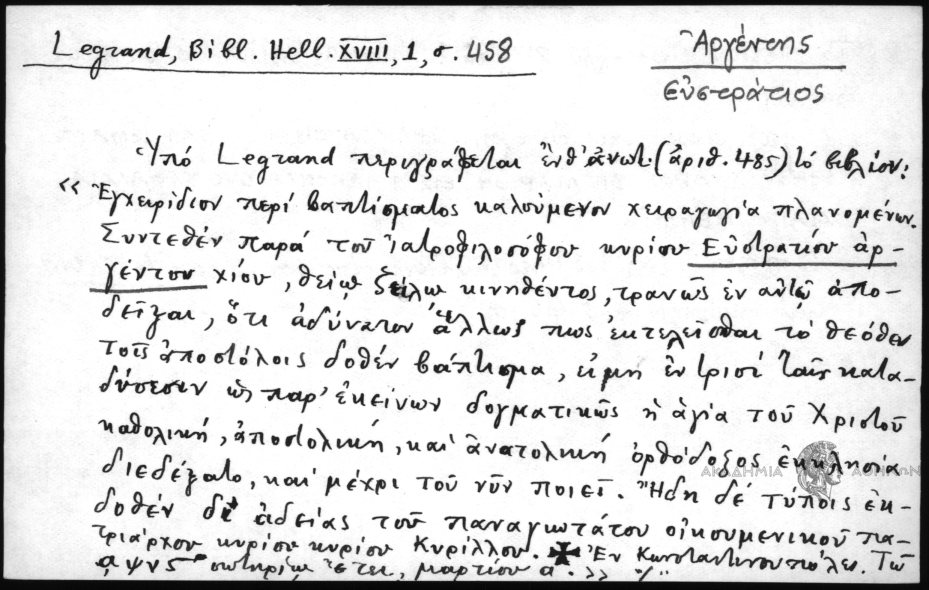 Legrand, Bibl. Hell. XVIII, 1, σ. 458
Ἀργέντης
Εὐστράτιος
Ὑπό Legrand περιγράφεται ἐνθ' ἀνωτ. (ἀριθ. 485) τό βιβλίον:
«Ἐγχειρίδιον περί βαπτίσματος καλούμενον χειραγωγία πλανομένων.
Συντεθέν παρά τοῦ ἰατροφιλοσόφου κυρίου Εὐστρατίου ἀρ-
γέντου χίου, θείῳ ζήλω κινηθέντος, τρανῶς ἐν αὐτῷ ἀπο-
δεῖξαι, ὅτι ἀδύνατον ἄλλως πως ἐκτελεῖσθαι τό θεόθεν
τοῖς ἀποστόλοις δοθέν βάπτισμα, εἰμή ἐν τρισί ταῖς κατα-
δύσεσιν ὡς παρ' ἐκείνων δογματικῶς ἡ ἁγία τοῦ Χριστοῦ
καθολική, ἀποστολική, καί ἀνατολική ὀρθόδοξος ἐκκλησία
διεδέξατο, καί μέχρι τοῦ νῦν ποιεῖ. Ἤδη δέ τύποις ἐκ-
δοθέν δι' ἀδείας τοῦ παναγιωτάτου οἰκουμενικοῦ πα-
τριάρχου κυρίου κυρίου Κυρίλλου. ✠ Ἐν Κωνσταντινουπόλει. Τῷ
αψνς σωτηρίῳ ἔτει, μαρτίου α.»
ΑΚΑΔΗΜΙΑ ΑΘΗΝΩΝ